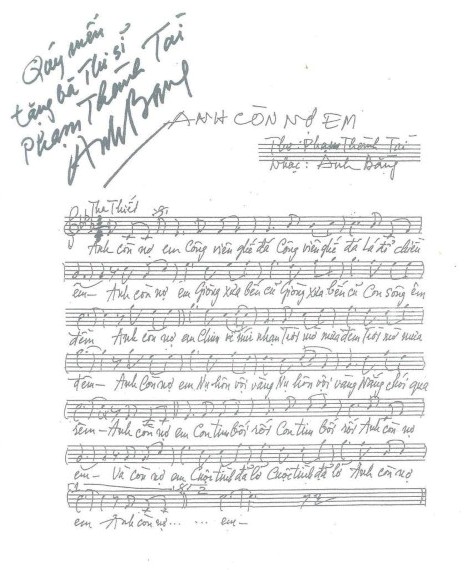 Quý mến
tặng bà Thi sĩ
Phạm Thành Tài
Anh Bằng
ANH CÒN NỢ EM
Thơ: Phạm Thành Tài
Nhạc: Anh Bằng
Tha Thiết
Anh còn nợ em Công viên ghế đá Công viên ghế đá Lá đổ chiều
êm— Anh còn nợ em Giòng xưa bến cũ Giòng xưa bến cũ Con sông êm
đềm Anh còn nợ em Chim về núi nhạn Trời mờ mưa đêm Trời mờ mưa
đêm— Anh còn nợ em Nụ hôn vội vàng Nụ hôn vội vàng Nắng chói qua
rèm— Anh còn nợ em Con tim bối rối Con tim bối rối Anh còn nợ
em— Và còn nợ em Cuộc tình đã lỡ Cuộc tình đã lỡ Anh còn nợ
em Anh còn nợ... ... em—